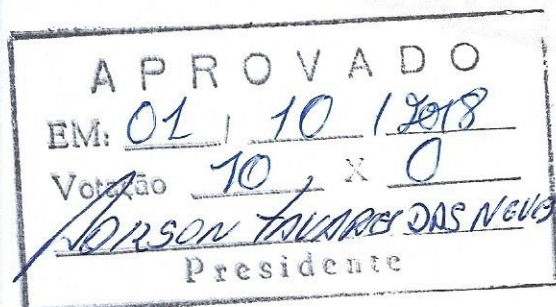 APROVADO
EM: 01 / 10 / 2018
Votação 10 X 0
TAVARES DAS NEVES
Presidente